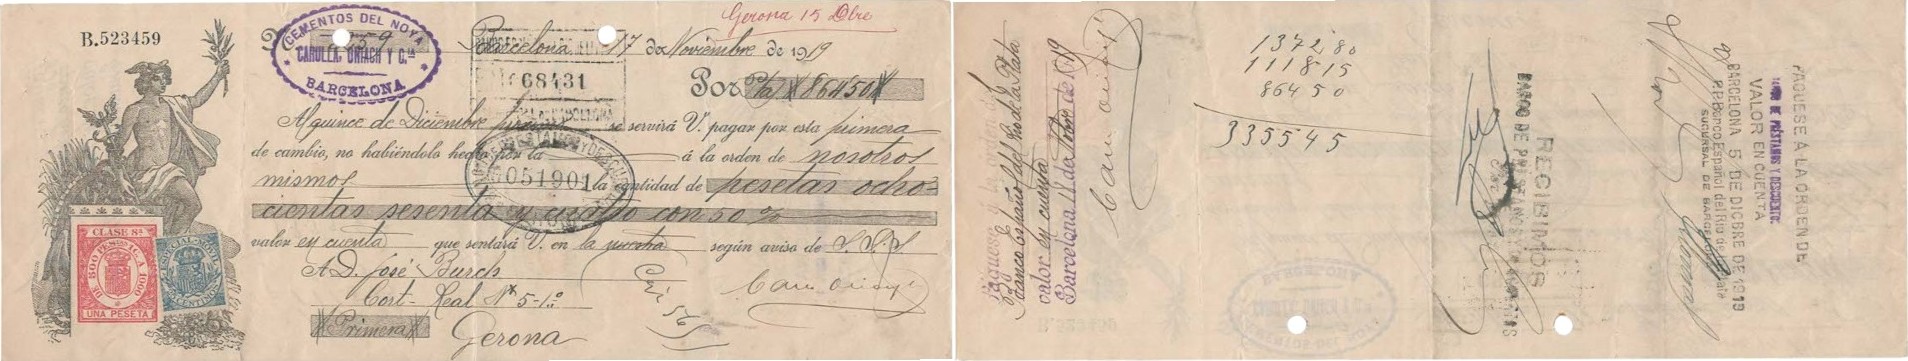 B.523459
CEMENTOS DEL NOYA
CAROLLA, ORIACH Y Cía
BARCELONA
Gerona 15 Dbre
Barcelona 17 de Noviembre de 1919
68431
Por Pts 864 50
Al quince de Diciembre se servirá V. pagar por esta primera
de cambio, no habiéndolo hecho por la á la orden de nosotros
mismos la cantidad de pesetas ocho-
051901
cientas sesenta y cuatro con 50 %
valor en cuenta que sentará V. en la según aviso de S.S.S.
A D. José Burch
Cort-Real Nº 5-1º
Primera
Gerona
CLASE 8ª
DE 500 PESETAS A 1000
UNA PESETA
ESPECIAL MOVIL
Paguese á la orden del
Banco Español del Rio de la Plata
valor en cuenta
Barcelona de 1919
1372 80
1118 15
864 50
3355 45
RECIBIMOS
BANCO DE PRESTAMOS Y DESCUENTOS
PAGUESE A LA ORDEN DE
BANCO DE PRÉSTAMOS Y DESCUENTOS
VALOR EN CUENTA
BARCELONA 5 DE DICBRE DE 1919
P.P. Banco Español del Rio de la Plata
SUCURSAL DE BARCELONA
B.523459